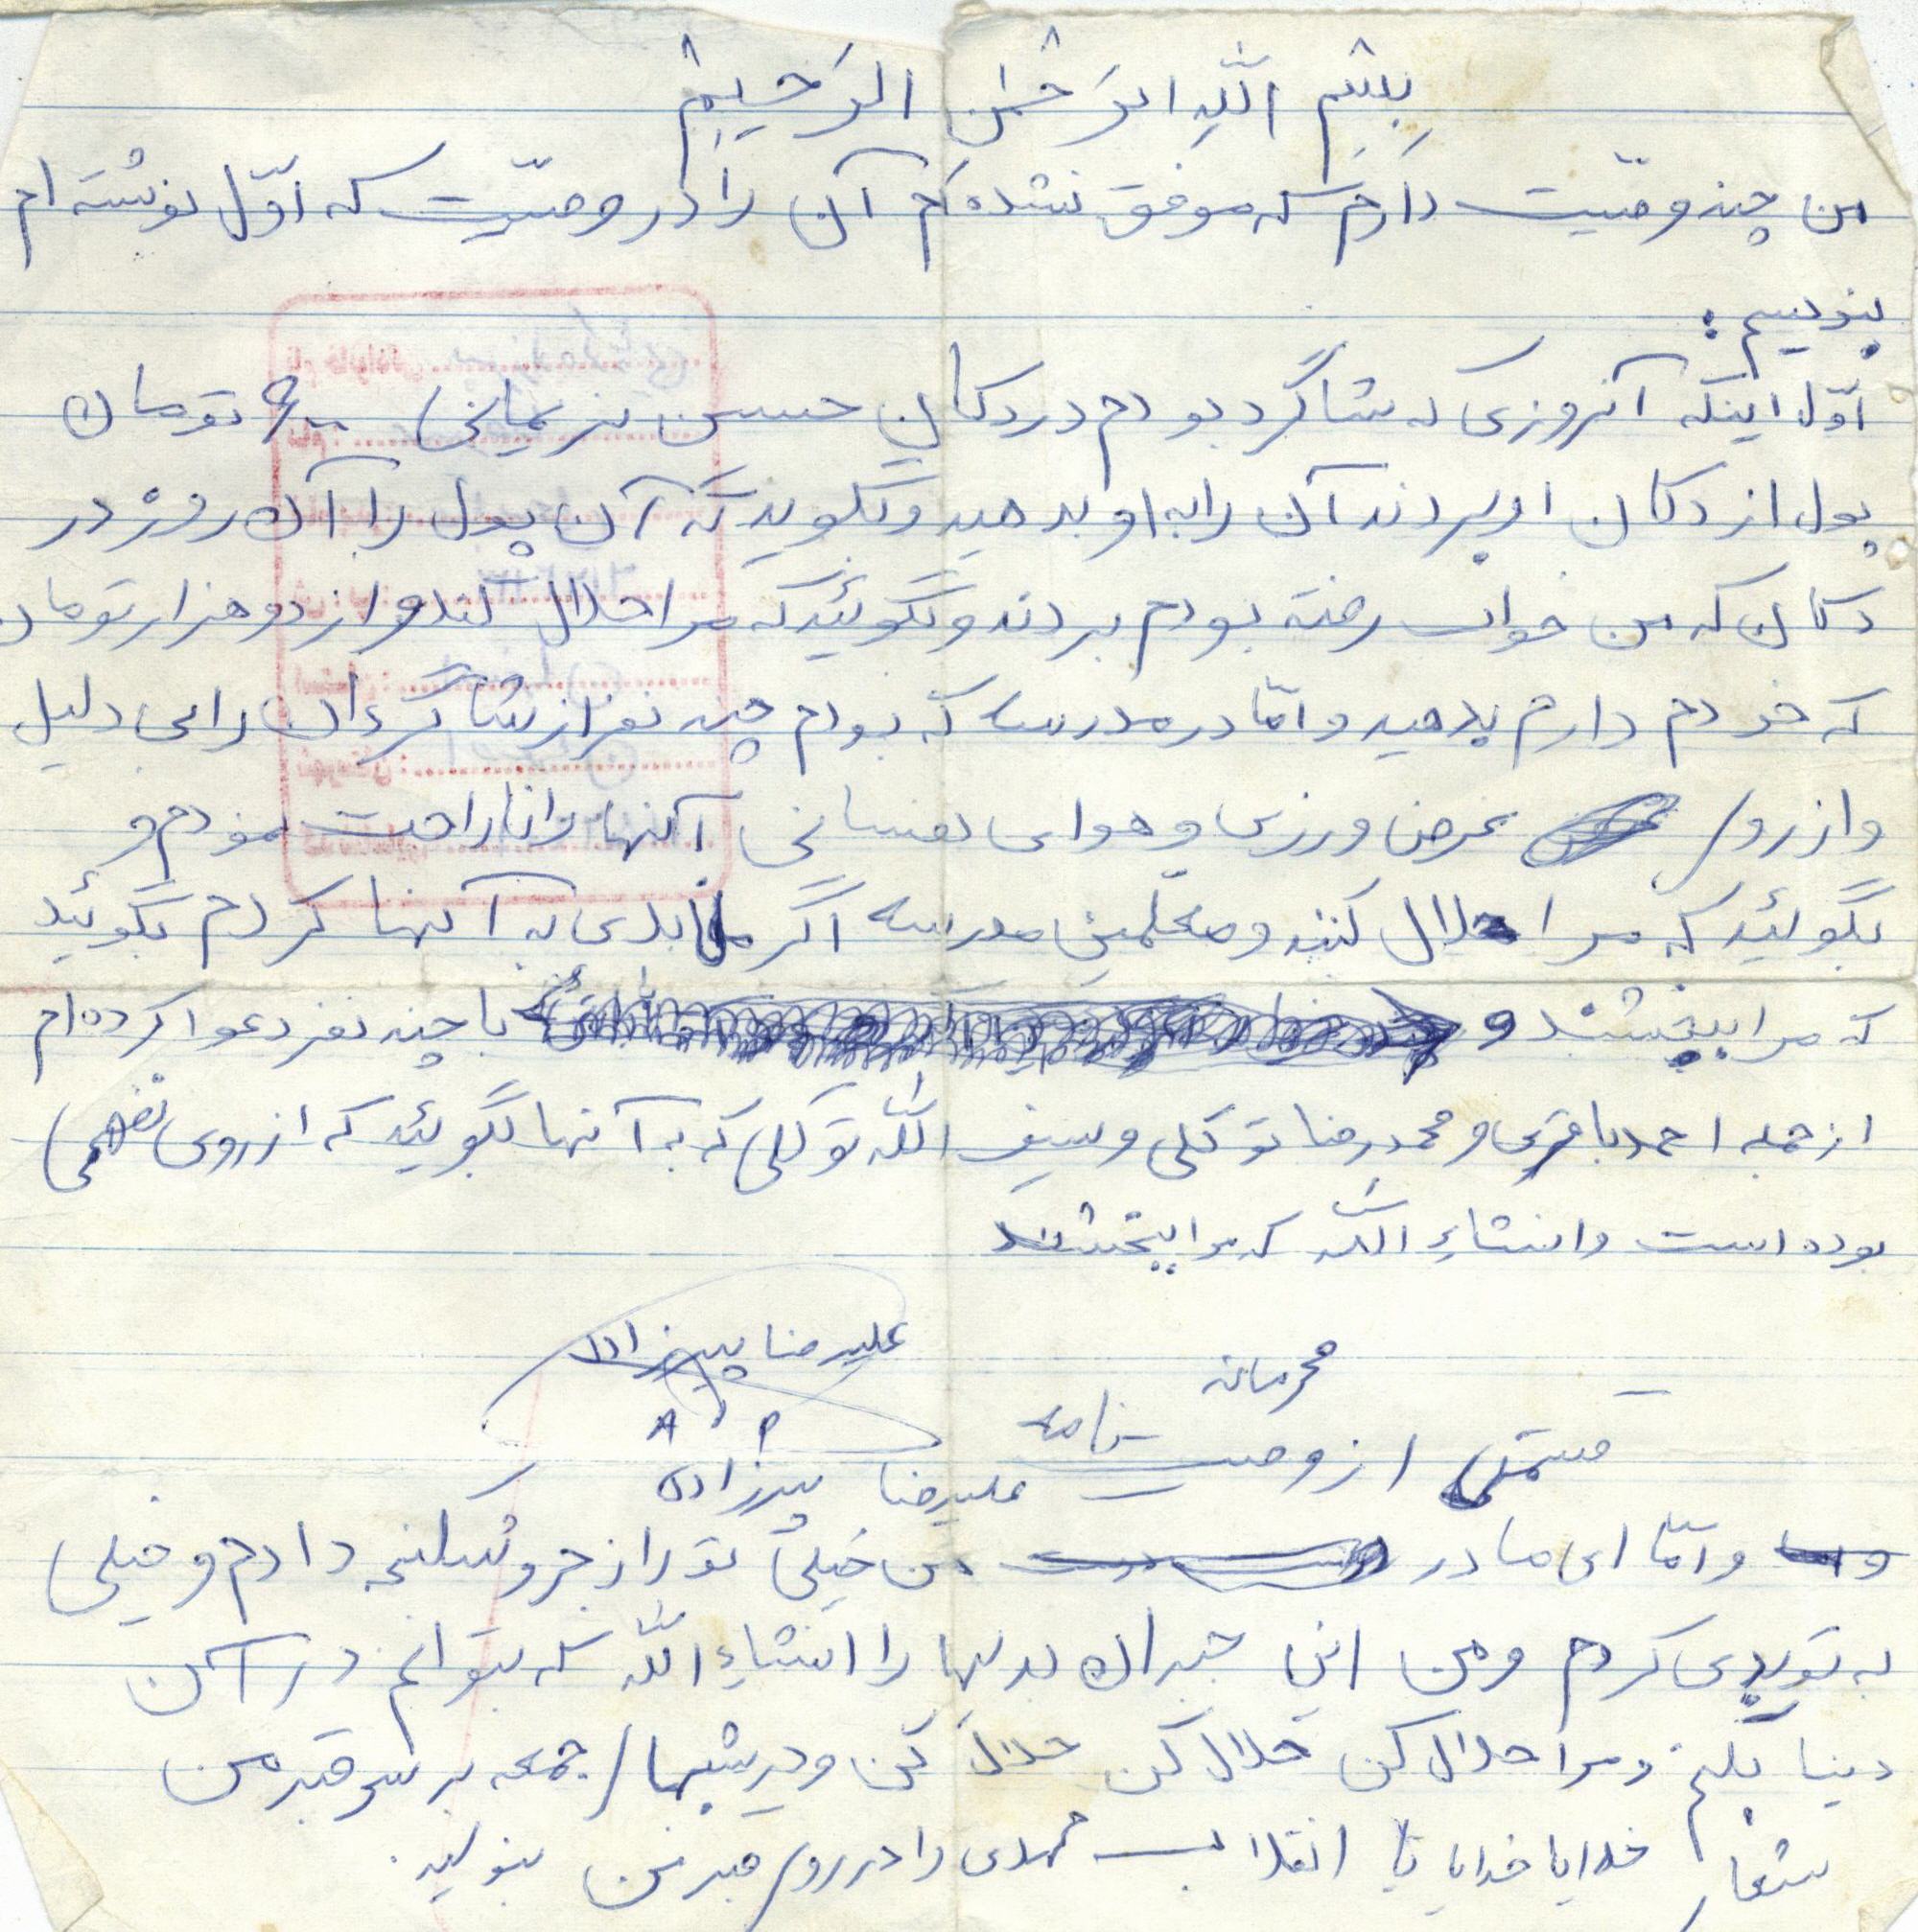 بِسْمِ اللّهِ الرَّحْمٰنِ الرَّحیمْ
من چند وصیّت دارم که موفق نشده‌ام آن را در وصیّت که اوّل نوشته ام
بنویسم:
اوّل اینکه آنروزی که شاگرد بودم در دکان حسن تومان
پول از دکان او بردند آن را به او بدهید و بگوید که آن پول را آن روز در
دکان که من خواب رفته بودم بردند و بگوئید که مرا حلال کند و از دو هزار تومان
که خودم دارم بدهید و امّا در مدرسه که بودم چند نفر از شاگردان را بی دلیل
و از روی غرض ورزی و هوای نفسانی آنها را ناراحت نمودم و
بگوئید که مرا حلال کنند و معلمین مدرسه اگر بدی به آنها کردم بگوئید
که مرا ببخشند و با چند نفر دعوا کرده ام
از جمله احمد باقری و محمدرضا توکلی و سیف اللّه توکلی که به آنها بگوئید که از روی نفهمی
بوده است و انشاء اللّه که مرا ببخشند
علیرضا پیرزاده
محرمانه
قسمتی از وصیت نامه
علیرضا پیرزاده
و امّا ای مادر من خیلی تو را زجر و شکنجه دادم و خیلی
به تو بدی کردم و من این جبران بدیها را انشاء اللّه که بتوانم در آن
دنیا بکنم و مرا حلال کن حلال کن حلال کن و در شبهای جمعه بر سر قبر من
شعار خدایا خدایا تا انقلاب مهدی را در روی قبر من بنویسید.